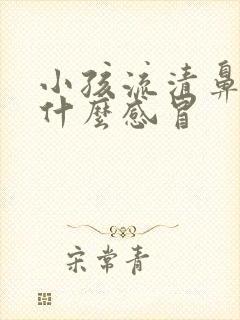 小孩流清鼻
什麼感冒
宋常青